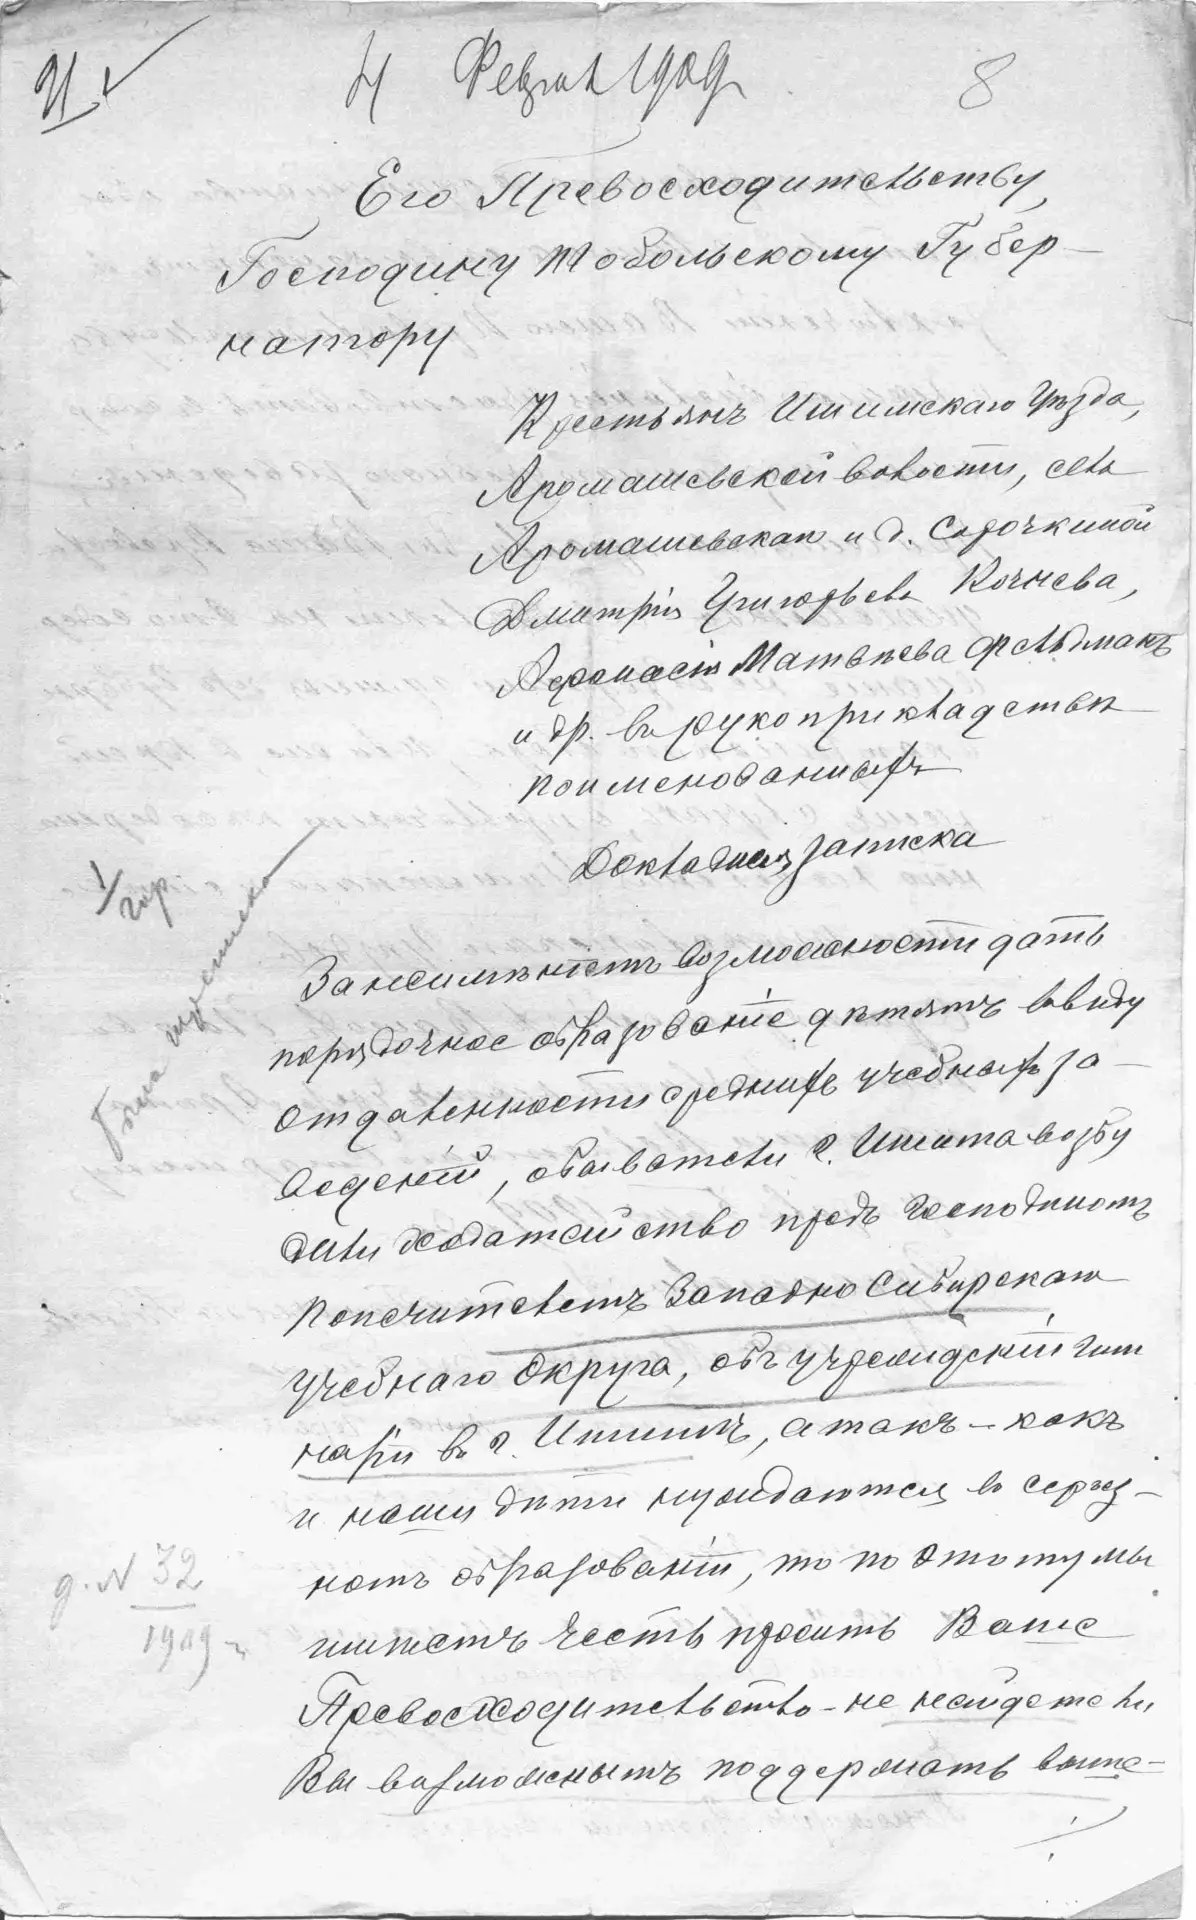 4 Февраля 1909 8
Его Превосходительству,
Господину Тобольскому Губер-
натору
Крестьянъ Ишимскаго Уѣзда,
Аромашевской волости, села
Аромашевскаго и д. Сорочкиной
Дмитрія Григорьева Кочнева,
Афанасія Матвѣева Фельдманъ
и др. въ рукоприкладствѣ
поименованныхъ
Докладная записка
За неимѣніемъ возможности дать
порядочное образованіе дѣтямъ въ виду
отдаленности среднихъ учебныхъ за-
веденій, обыватели г. Ишима возбу
дили ходатайство предъ Господиномъ
Попечителемъ Западно Сибирскаго
учебнаго Округа, объ учрежденіи гим
назіи въ г. Ишимѣ, а такъ-какъ
и наши дѣти нуждаются въ серьез-
номъ образованіи, то по этому мы
имѣемъ честь просить Ваше
Превосходительство-не найдете ли
Вы возможнымъ поддержать выше-
1/гор
д. № 32
1909 г